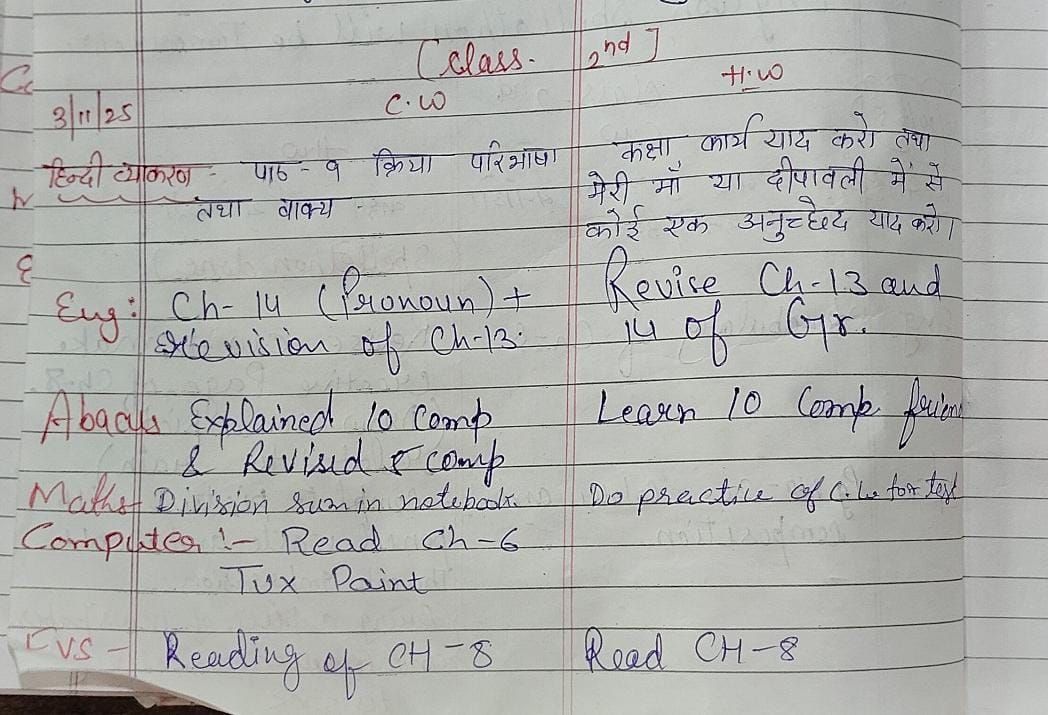 [Class. 2nd]
C.W H.W
3/11/25
हिन्दी व्याकरण - पाठ - 9 क्रिया परिभाषा
तथा वाक्य
कक्षा कार्य याद करो तथा
मेरी माँ या दीपावली में से
कोई एक अनुच्छेद याद करो।
Eng: Ch-14 (Pronoun) +
Revision of Ch-13.
Revise Ch-13 and
14 of Gr.
Abacus Explained 10 Comp
& Revised 5 comp
Learn 10 Comp. friend
Maths Division sum in notebook. Do practice of C.W for test
Computer :- Read Ch-6
Tux Paint
EVS - Reading of CH-8 Read CH-8